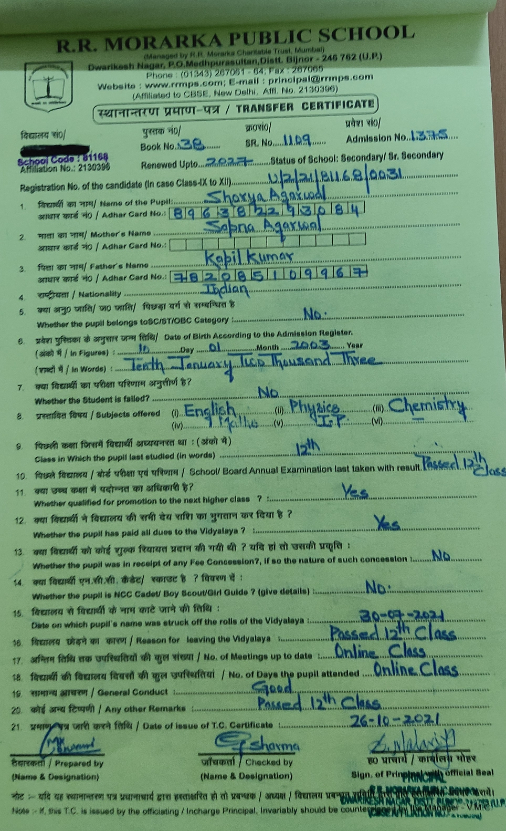 R.R. MORARKA PUBLIC SCHOOL
(Managed by R.R. Morarka Charitable Trust, Mumbai)
Dwarikesh Nagar, P.O.Medhpurasultan, Distt. Bijnor - 246 762 (U.P.)
Phone : (01343) 267061 - 64, Fax : 267065
Website : www.rrmps.com; E-mail : principal@rrmps.com
(Affiliated to CBSE, New Delhi, Affl. No. 2130396)
स्थानान्तरण प्रमाण-पत्र / TRANSFER CERTIFICATE
विद्यालय सं०/ पुस्तक नं०/ क्र०सं०/ प्रवेश सं०/
Book No. 38 SR. No. 1109 Admission No. 1375
School Code : 81168
Affiliation No.: 2130396 Renewed Upto. 2027 Status of School: Secondary/ Sr. Secondary
Registration No. of the candidate (in case Class-IX to XII) U/2/21/81168/0031
1. विद्यार्थी का नाम/ Name of the Pupil: Shorya Agarwal
आधार कार्ड नं० / Adhar Card No.: 896382293084
2. माता का नाम/ Mother's Name Sapna Agarwal
आधार कार्ड नं०/ Adhar Card No.:
3. पिता का नाम/ Father's Name Kapil Kumar
आधार कार्ड नं० / Adhar Card No.: 782085109967
4. राष्ट्रीयता / Nationality Indian
5. क्या अनु० जाति/ ज० जाति/ पिछड़ा वर्ग से सम्बन्धित है
Whether the pupil belongs toSC/ST/OBC Category : No.
6. प्रवेश पुस्तिका के अनुसार जन्म तिथि/ Date of Birth According to the Admission Register.
(अंको में / In Figures) : 10 Day 01 Month 2003 Year
(शब्दों में / In Words) : Tenth January Two Thousand Three
7. क्या विद्यार्थी का परीक्षा परिणाम अनुत्तीर्ण है?
Whether the Student is failed? No
8. प्रस्तावित विषय / Subjects offered (i) English (ii) Physics (iii) Chemistry
(iv) Maths (v) I.P (vi) —
9. पिछली कक्षा जिसमें विद्यार्थी अध्ययनरत था : (अंको में)
Class in Which the pupil last studied (in words) 12th
10. पिछले विद्यालय / बोर्ड परीक्षा एवं परिणाम / School/ Board Annual Examination last taken with result Passed 12th Class
11. क्या उच्च कक्षा में पदोन्नत का अधिकारी है?
Whether qualified for promotion to the next higher class ? : Yes
12. क्या विद्यार्थी ने विद्यालय की सभी देय राशि का भुगतान कर दिया है?
Whether the pupil has paid all dues to the Vidyalaya ? : Yes
13. क्या विद्यार्थी को कोई शुल्क रियायत प्रदान की गयी थी ? यदि हां तो उसकी प्रकृति :
Whether the pupil was in receipt of any Fee Concession?, if so the nature of such concession : No
14. क्या विद्यार्थी एन.सी.सी. कैडेट/ स्काउट है ? विवरण दें :
Whether the pupil is NCC Cadet/ Boy Scout/Girl Guide ? (give details) : No.
15. विद्यालय से विद्यार्थी के नाम काटे जाने की तिथि :
Date on which pupil's name was struck off the rolls of the Vidyalaya : 30-07-2021
16. विद्यालय छोड़ने का कारण / Reason for leaving the Vidyalaya : Passed 12th Class
17. अन्तिम तिथि तक उपस्थितियों की कुल संख्या / No. of Meetings up to date : Online Class
18. विद्यार्थी की विद्यालय दिवसों की कुल उपस्थितियां / No. of Days the pupil attended Online Class
19. सामान्य आचरण / General Conduct : Good
20. कोई अन्य टिप्पणी / Any other Remarks : Passed 12th Class
21. प्रमाण पत्र जारी करने तिथि / Date of issue of T.C. Certificate : 26-10-2021
Sharma
तैयारकर्ता / Prepared by जाँचकर्ता / Checked by ह० प्राचार्य / कार्यालय मोहर
(Name & Designation) (Name & Designation) Sign. of Principal with official Seal
PRINCIPAL
नोट :- यदि यह स्थानान्तरण पत्र प्रधानाचार्य द्वारा हस्ताक्षरित हो तो प्रबन्धक / अध्यक्ष / विद्यालय प्रबन्धन
Note :- If, this T.C. is issued by the officiating / Incharge Principal, Invariably should be Manager - V.M.C.